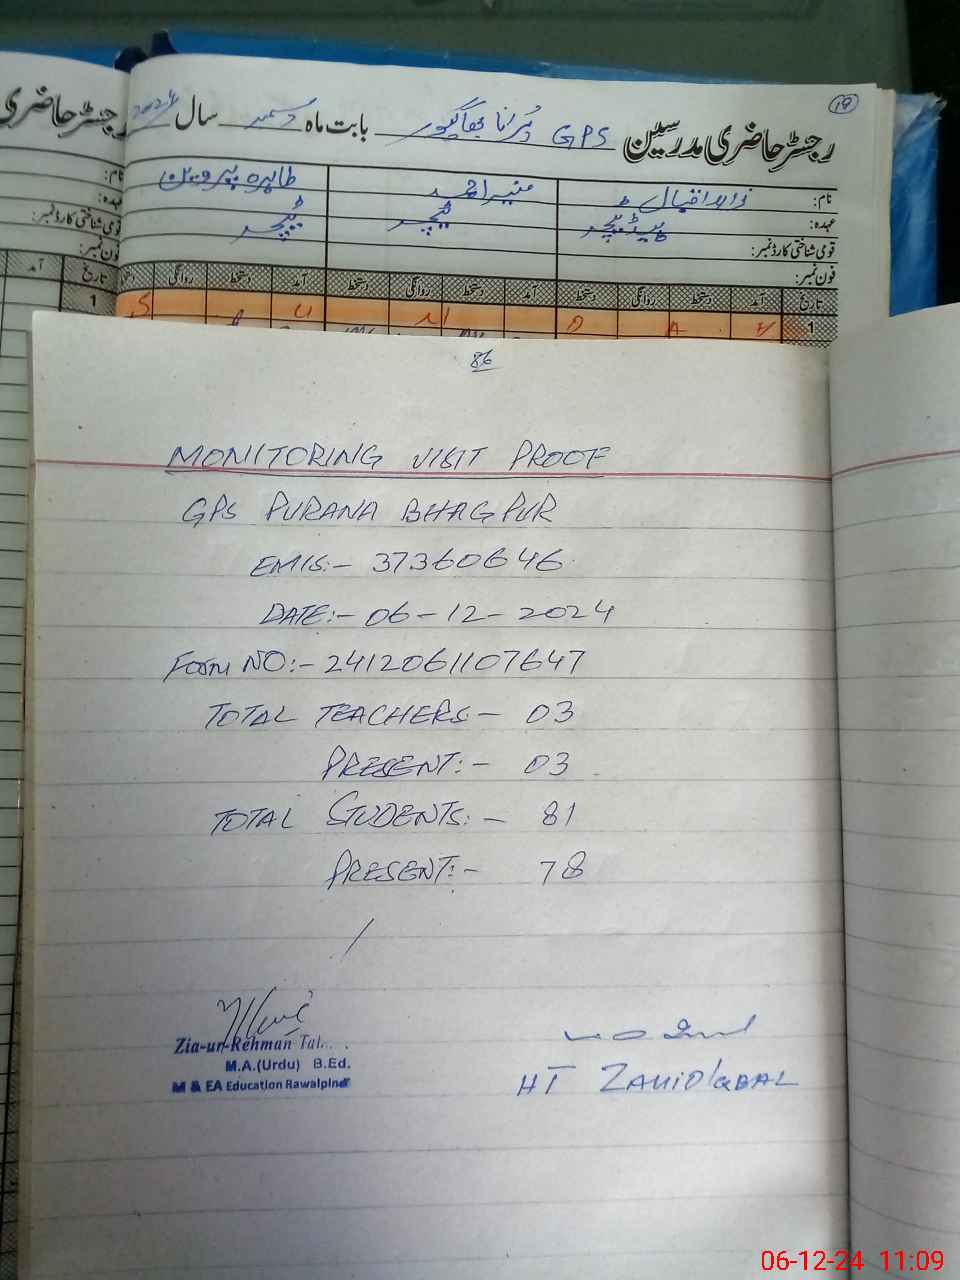 19
رجسٹر حاضری مدرسین GPS پُرانا بھاگپور بابت ماہ دسمبر سال 2024
رجسٹر حاضری
نام: زاہد اقبال منیر احمد طاہرہ پروین
عہدہ: ہیڈ ٹیچر ٹیچر ٹیچر
قومی شناختی کارڈ نمبر:
فون نمبر:
تاریخ آمد روانگی دستخط آمد دستخط روانگی دستخط آمد دستخط روانگی
1
نام:
عہدہ:
قومی شناختی کارڈ نمبر:
فون نمبر:
تاریخ آمد
1
86
MONITORING VISIT PROOF
GPS PURANA BHAGPUR
EMIS:- 37360646
DATE:- 06-12-2024
Form NO:- 2412061107647
TOTAL TEACHERS:- 03
PRESENT:- 03
TOTAL STUDENTS:- 81
PRESENT:- 78
Zia-ur-Rehman
M.A.(Urdu) B.Ed.
M & EA Education Rawalpindi
HT ZAHID IQBAL
06-12-24 11:09